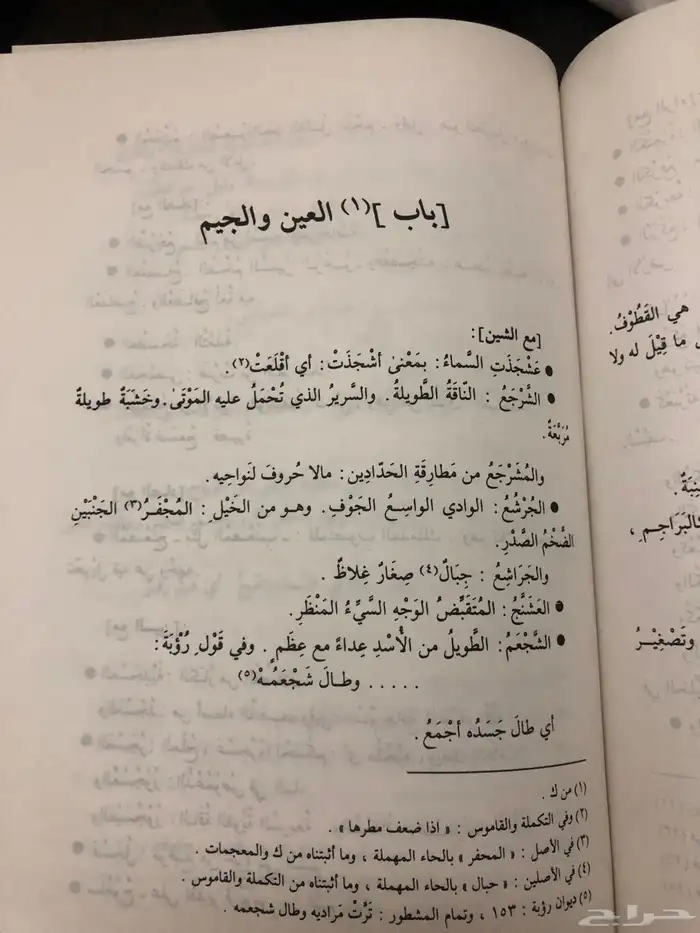 [باب ](١) العين والجيم
[مع الشين]:
● عَشْجَذَتِ السَّماءُ: بمَعْنىٰ أشْجَذَتْ: أي أقْلَعَتْ(٢).
● الشَّرْجَعُ : النّاقَةُ الطَّويلةُ. والسَّريرُ الذي تُحْمَلُ عليه المَوْتىٰ. وخَشَبَةٌ طويلةٌ
مُرَبَّعَةٌ.
والمُشَرْجَعُ من مَطارِقَةِ الحَدّادِين: مالا حُروفَ لنَواحِيه.
● الجُرْشُعُ: الوادي الواسِعُ الجَوْفِ. وهو من الخَيْلِ: المُجْفَرُ(٣) الجَنْبَيْنِ
الضَّخْمُ الصَّدْرِ.
والجَرَاشِعُ : جِبَالٌ(٤) صِغَارٌ غِلاظٌ .
● العَشَنَّجُ: المُتَقَبِّضُ الوَجْهِ السَّيِّءُ المَنْظَرِ.
● الشَّجْعَمُ: الطَّويلُ من الأُسْدِ عِداءً مع عِظَمٍ. وفي قَوْلِ رُؤْبَةَ:
. . . . . وطـالَ شَجْعَمُـهْ(٥)
أي طالَ جَسَدُه أجْمَعُ .
(١) من ك .
(٢) وفي التكملة والقاموس : « اذا ضعف مطرها » .
(٣) في الأصل : « المحفر » بالحاء المهملة ، وما أثبتناه من ك والمعجمات .
(٤) في الأصلين : « حبال » بالحاء المهملة ، وما أثبتناه من التكملة والقاموس .
(٥) ديوان رؤبة : ١٥٣ ، وتمام المشطور : تَرُتْ مَراديه وطال شجعمه .
هي القَطُوْفُ.
ما قِيْلَ له ولا
كالبَرَاجِـمِ ،
وتَصْغِيْـرُ
حراج